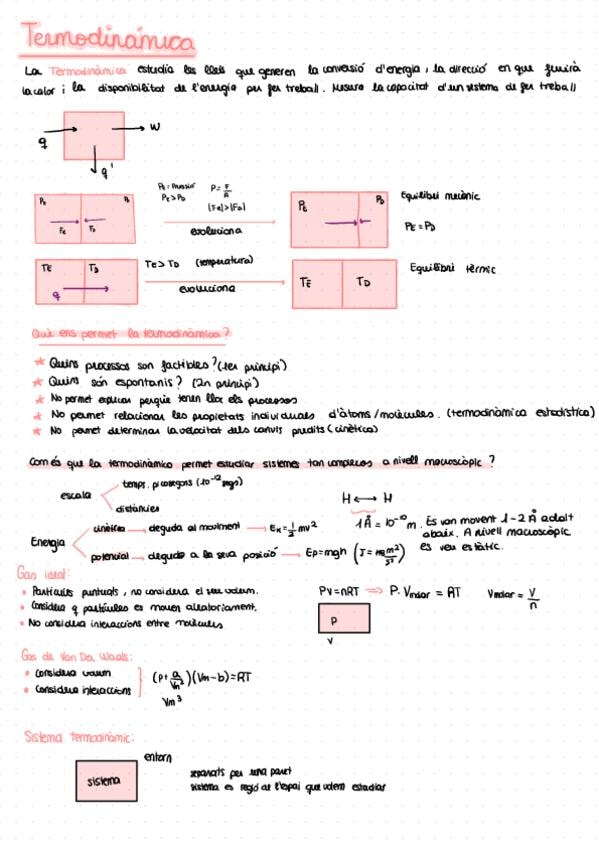 Termodinámica
La Termodinàmica estudia les lleis que generen la conversió d'energia, la direcció en que fluirà
la calor i la disponibilitat de l'energia per fer treball. Mesura la capacitat d'un sistema de fer treball
q
W
q'
PE
PD
FE
FD
PE = Pressió
P = F/A
PE > PD
|FE| > |FD|
evoluciona
PE
PD
Equilibri mecànic
PE = PD
TE
TD
q
TE > TD (temperatura)
evoluciona
TE
TD
Equilibri tèrmic
Què ens permet la termodinàmica?
Quins processos son factibles? (1er principi)
Quins són espontanis? (2n principi)
No permet explicar perquè tenen lloc els processos
No permet relacionar les propietats individuals d'àtoms/molècules. (termodinàmica estadística)
No permet determinar la velocitat dels canvis predits (cinètica)
Com és que la termodinàmica permet estudiar sistemes tan complexos a nivell macroscòpic?
escala
temps. picosegons (10⁻¹² segs)
distàncies
H ⟷ H
1 Å = 10⁻¹⁰ m. Es van movent 1-2 Å adalt
abaix. A nivell macroscòpic
es veu estàtic.
Energia
cinètica → deguda al moviment → Ek = 1/2 mv²
potencial → deguda a la seva posició → Ep = mgh
Gas ideal:
Partícules puntuals, no considera el seu volum.
Considera q partícules es mouen aleatoriament.
No considera interaccions entre molècules
PV = nRT ⟹ P. Vmolar = RT
Vmolar = V/n
P
V
Gas de Van Der Waals:
Considera volum
Considera interaccions
(P + a/Vm²)(Vm - b) = RT
Vm³
Sistema termodinàmic:
entorn
sistema
separats per una paret
sistema es regió de l'espai que volem estudiar